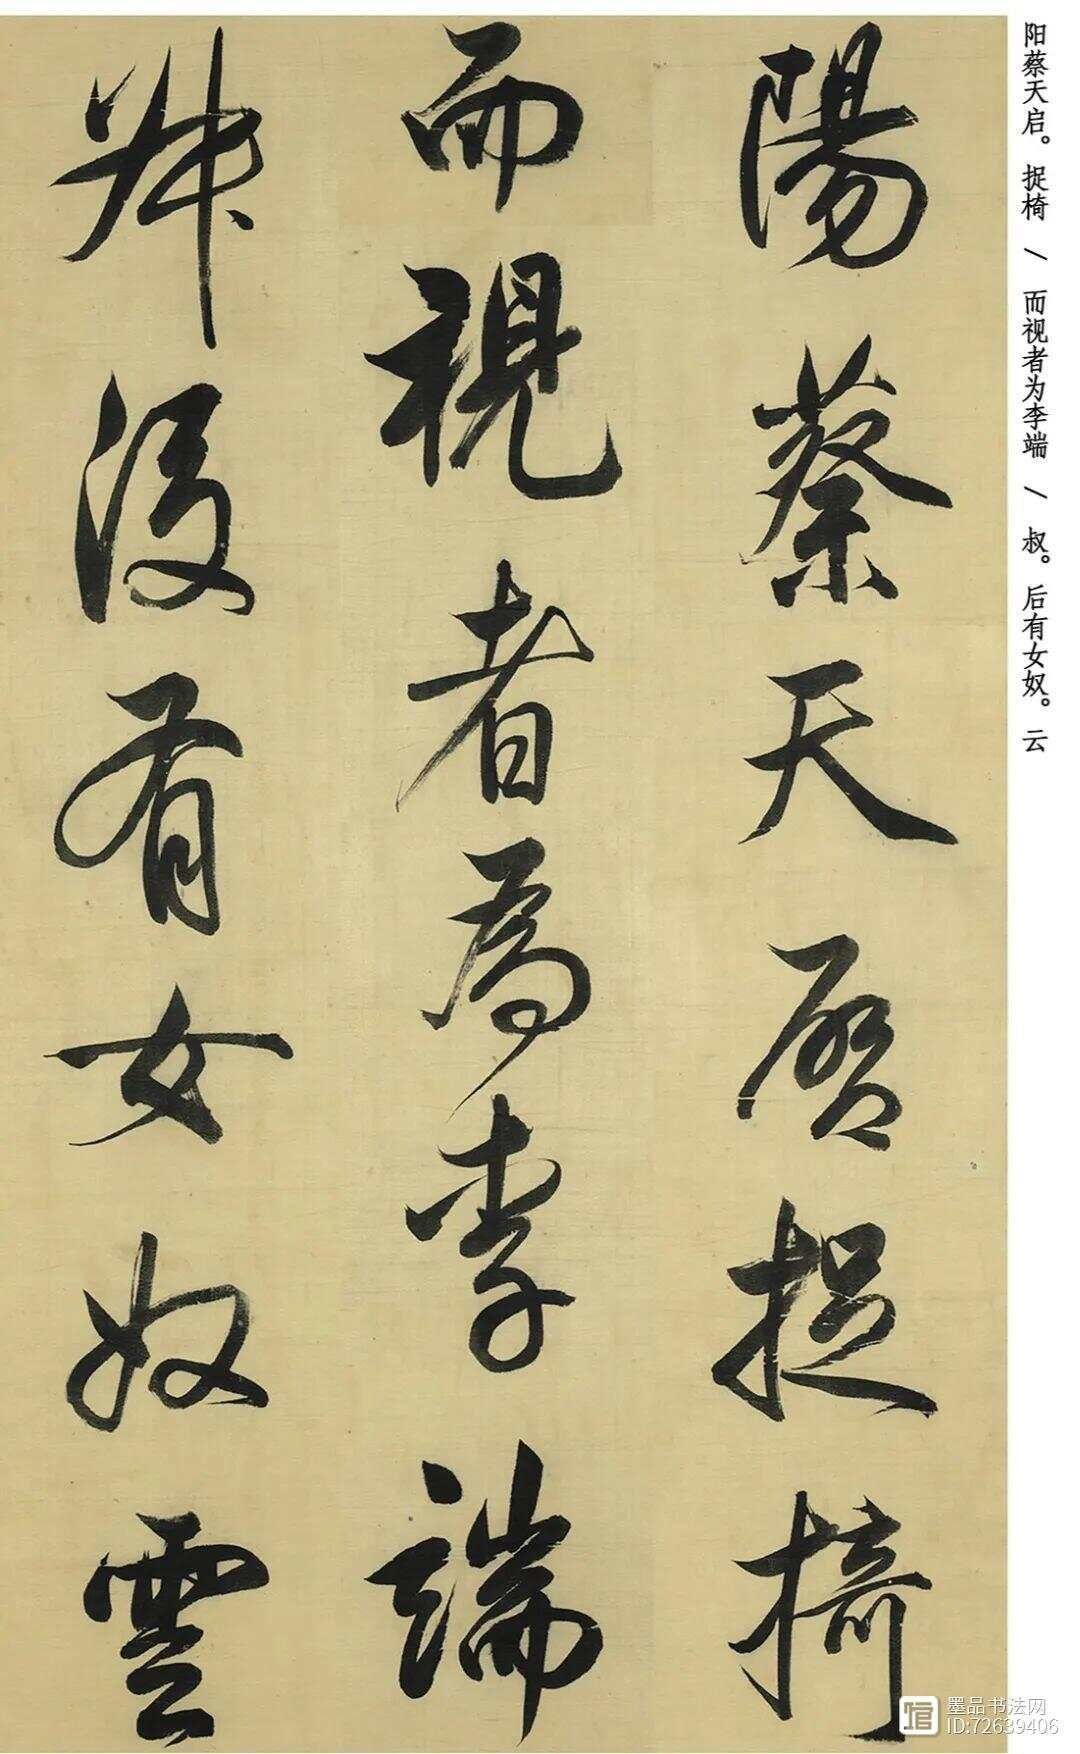 陽蔡天啓捉椅
而視者為李端
叔後有女奴雲
阳蔡天启。捉椅 / 而视者为李端 / 叔。后有女奴。云
墨品书法网
ID:72639406